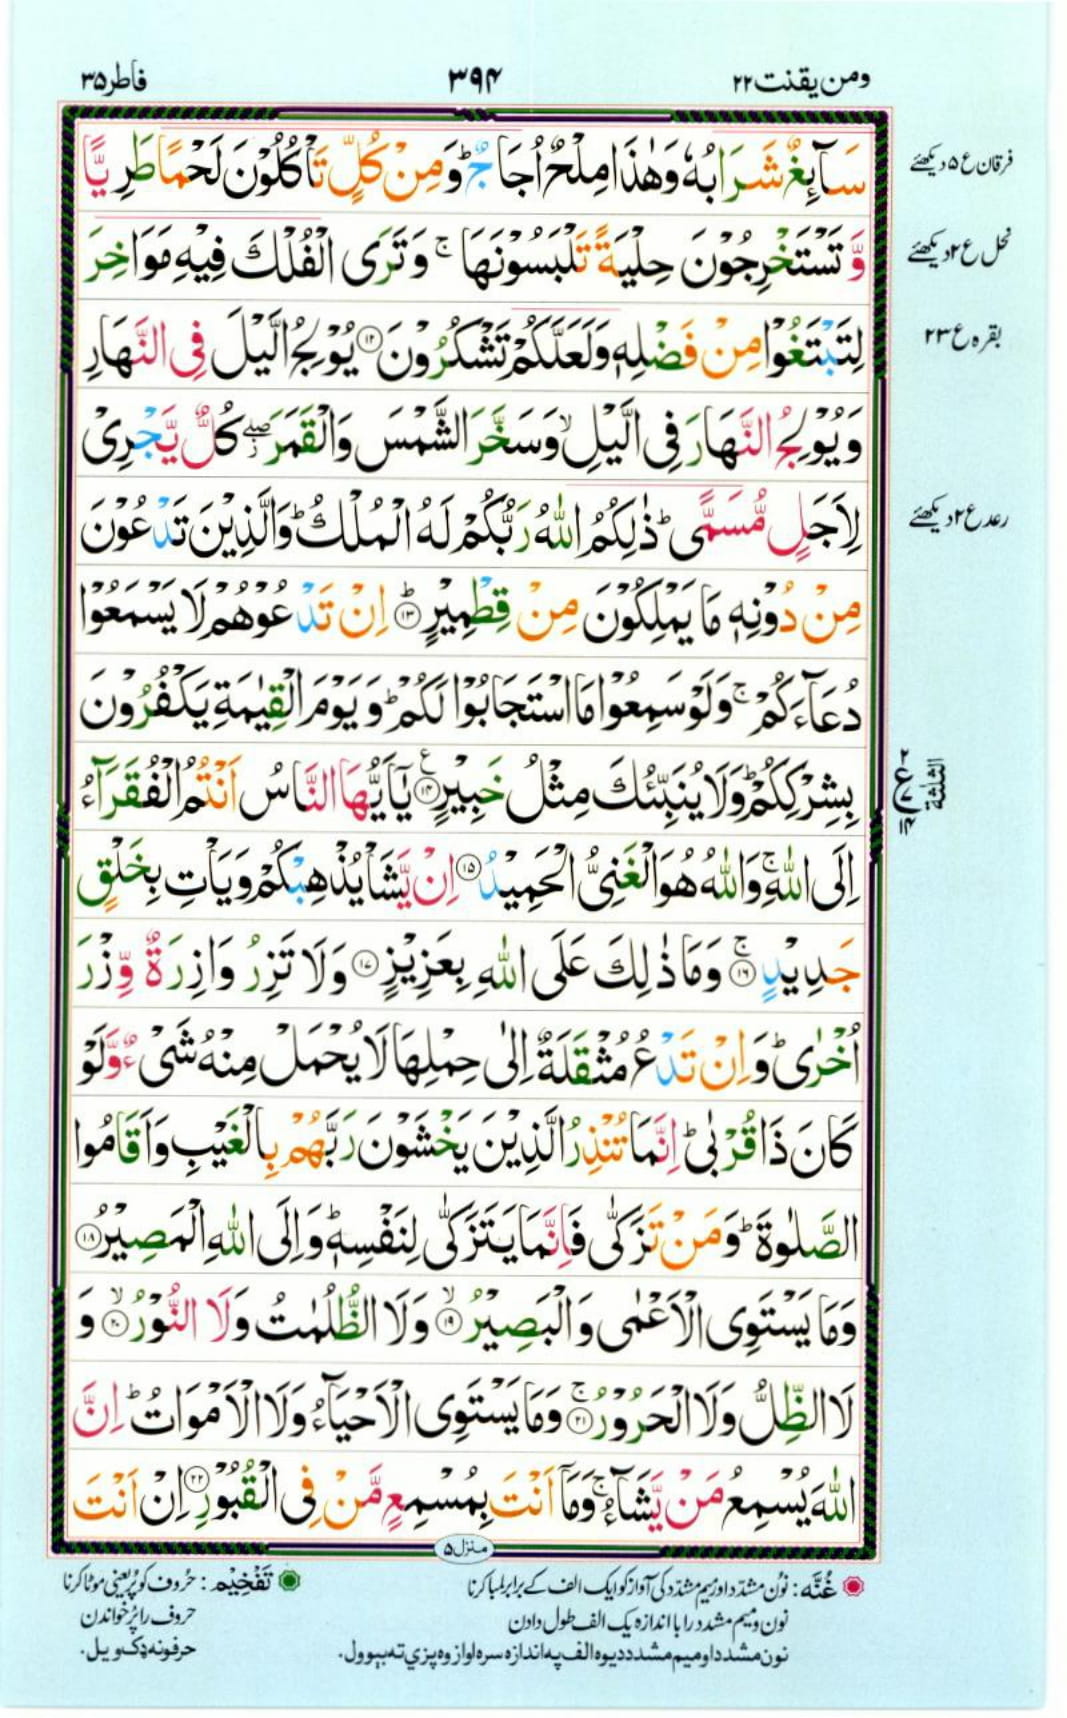 ومن یقنت ۲۲
۳۹۴
فاطر ۳۵
سَآئِغٌ شَرَابُهٗ وَهٰذَا مِلْحٌ اُجَاجٌ ؕ وَمِنْ كُلٍّ تَاْكُلُوْنَ لَحْمًا طَرِيًّا
وَّ تَسْتَخْرِجُوْنَ حِلْيَةً تَلْبَسُوْنَهَا ۚ وَتَرَى الْفُلْكَ فِيْهِ مَوَاخِرَ
لِتَبْتَغُوْا مِنْ فَضْلِهٖ وَلَعَلَّكُمْ تَشْكُرُوْنَ ۝۱۲ يُوْلِجُ الَّيْلَ فِى النَّهَارِ
وَيُوْلِجُ النَّهَارَ فِى الَّيْلِ ۙ وَسَخَّرَ الشَّمْسَ وَالْقَمَرَ ۖ كُلٌّ يَّجْرِىْ
لِاَجَلٍ مُّسَمًّى ؕ ذٰلِكُمُ اللّٰهُ رَبُّكُمْ لَهُ الْمُلْكُ ؕ وَالَّذِيْنَ تَدْعُوْنَ
مِنْ دُوْنِهٖ مَا يَمْلِكُوْنَ مِنْ قِطْمِيْرٍ ؕ۝۱۳ اِنْ تَدْعُوْهُمْ لَا يَسْمَعُوْا
دُعَآءَكُمْ ۚ وَلَوْ سَمِعُوْا مَا اسْتَجَابُوْا لَكُمْ ؕ وَيَوْمَ الْقِيٰمَةِ يَكْفُرُوْنَ
بِشِرْكِكُمْ ؕ وَلَا يُنَبِّئُكَ مِثْلُ خَبِيْرٍ ۝۱۴ يٰٓاَيُّهَا النَّاسُ اَنْتُمُ الْفُقَرَآءُ
اِلَى اللّٰهِ ۚ وَاللّٰهُ هُوَ الْغَنِىُّ الْحَمِيْدُ ۝۱۵ اِنْ يَّشَاْ يُذْهِبْكُمْ وَيَاْتِ بِخَلْقٍ
جَدِيْدٍ ۚ۝۱۶ وَمَا ذٰلِكَ عَلَى اللّٰهِ بِعَزِيْزٍ ۝۱۷ وَلَا تَزِرُ وَازِرَةٌ وِّزْرَ
اُخْرٰى ؕ وَاِنْ تَدْعُ مُثْقَلَةٌ اِلٰى حِمْلِهَا لَا يُحْمَلْ مِنْهُ شَىْءٌ وَّلَوْ
كَانَ ذَا قُرْبٰى ؕ اِنَّمَا تُنْذِرُ الَّذِيْنَ يَخْشَوْنَ رَبَّهُمْ بِالْغَيْبِ وَاَقَامُوا
الصَّلٰوةَ ؕ وَمَنْ تَزَكّٰى فَاِنَّمَا يَتَزَكّٰى لِنَفْسِهٖ ؕ وَاِلَى اللّٰهِ الْمَصِيْرُ ۝۱۸
وَمَا يَسْتَوِى الْاَعْمٰى وَالْبَصِيْرُ ۙ۝۱۹ وَلَا الظُّلُمٰتُ وَلَا النُّوْرُ ۙ۝۲۰ وَ
لَا الظِّلُّ وَلَا الْحَرُوْرُ ۚ۝۲۱ وَمَا يَسْتَوِى الْاَحْيَآءُ وَلَا الْاَمْوَاتُ ؕ اِنَّ
اللّٰهَ يُسْمِعُ مَنْ يَّشَآءُ ۚ وَمَآ اَنْتَ بِمُسْمِعٍ مَّنْ فِى الْقُبُوْرِ ۝۲۲ اِنْ اَنْتَ
فرقان ع ۵ دیکھئے
نحل ع ۲ دیکھئے
بقرہ ع ۲۳
رعد ع ۲ دیکھئے
۲
ع
۱۴
الثلٰثة
منزل ۵
غُنَّه : نون مشدّد اور میم مشدّد کی آواز کو ایک الف کے برابر لمبا کرنا
نون و میم مشدد را با اندازه یک الف طول دادن
نون مشدد او میم مشدد دیوه الف په اندازه سره اواز وه پزي ته بېوول.
تَفْخِيْم : حُروف کو پُر یعنی موٹا کرنا
حروف را پُر خواندن
حرفونه ډک ویل.